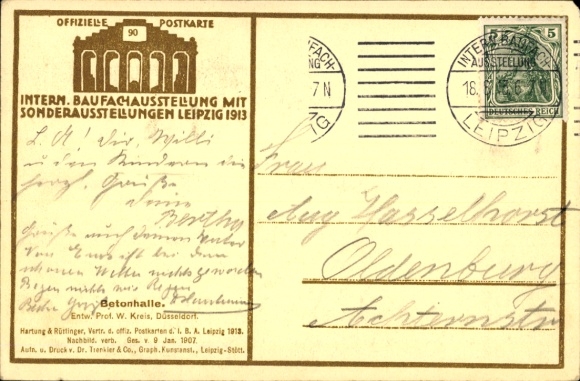 OFFIZIELLE POSTKARTE
90
INTERN. BAUFACHAUSSTELLUNG MIT
SONDERAUSSTELLUNGEN LEIPZIG 1913
L. A! Dir, Willi
u den Kindern die
herzl. Grüße
Deine
Bertha
Grüße auch Deinen Vater
Von Ems ist bei dem
schönen Wetter nichts geworden
Regen nichts wie Regen
Betonhalle.
Entw. Prof. W. Kreis, Düsseldorf.
Hartung & Rüttinger, Vertr. d. offiz. Postkarten d. I. B. A. Leipzig 1913.
Nachbild. verb. Ges. v. 9 Jan. 1907.
Autn. u. Druck v. Dr. Trenkler & Co., Graph. Kunstanst., Leipzig-Stött.
7 N
INTERN. BAUFACH-
AUSSTELLUNG
18.
LEIPZIG
5
DEUTSCHES REICH
Frau
Aug Hasselhorst
Oldenburg
Achternstr